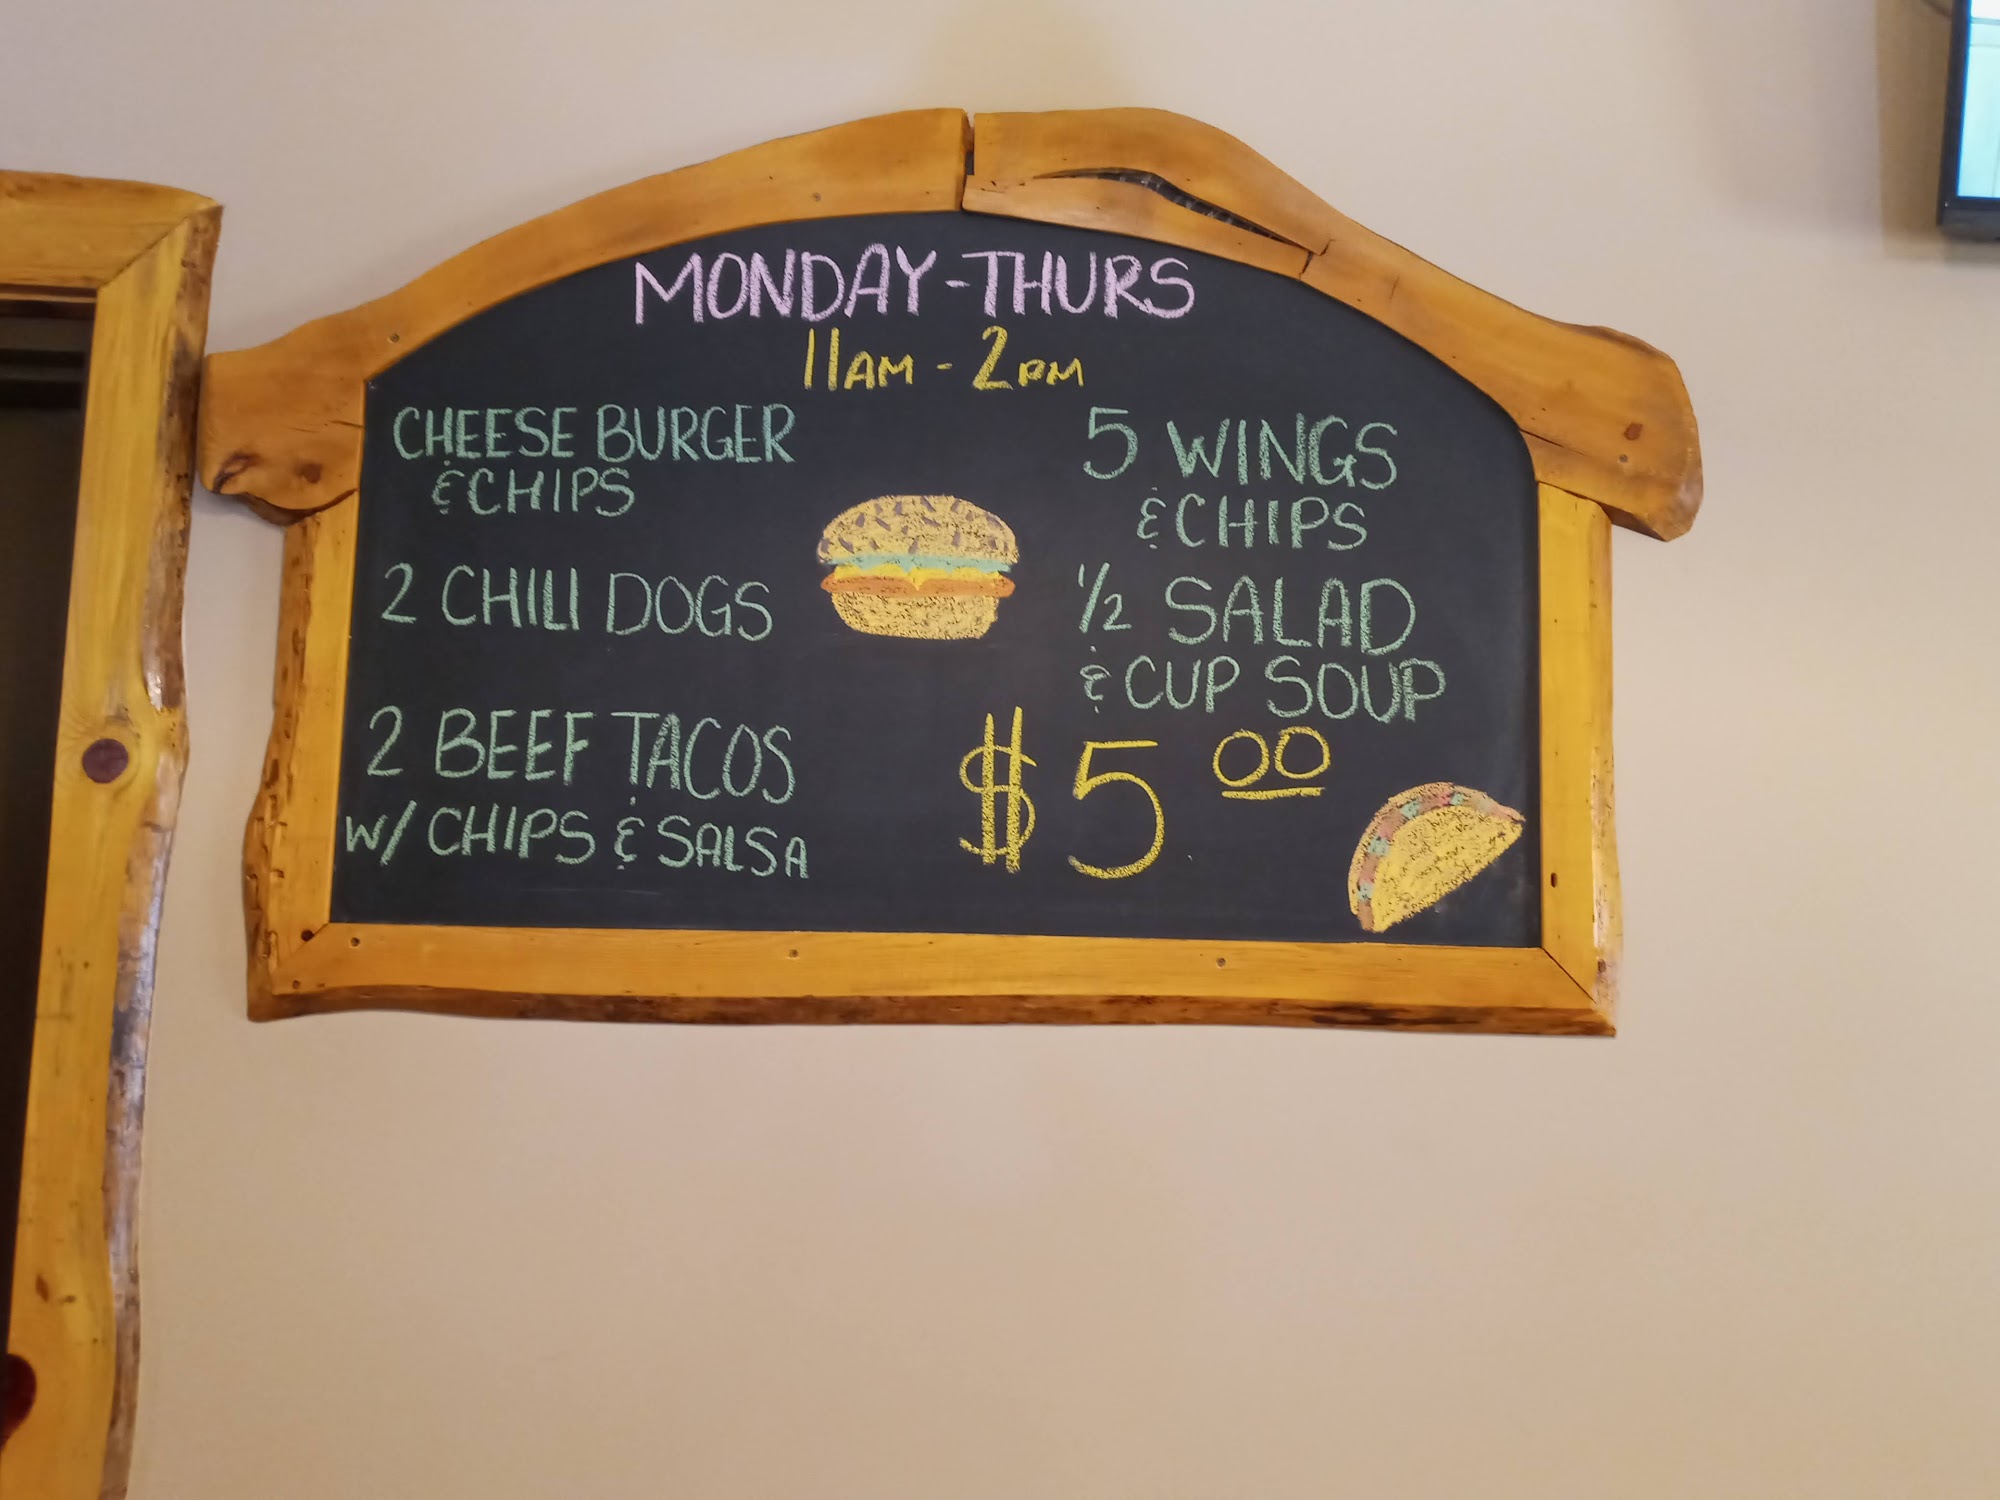 MONDAY-THURS
11AM - 2PM
CHEESE BURGER
& CHIPS
2 CHILI DOGS
2 BEEF TACOS
W/ CHIPS & SALSA
5 WINGS
& CHIPS
1/2 SALAD
& CUP SOUP
$5 00